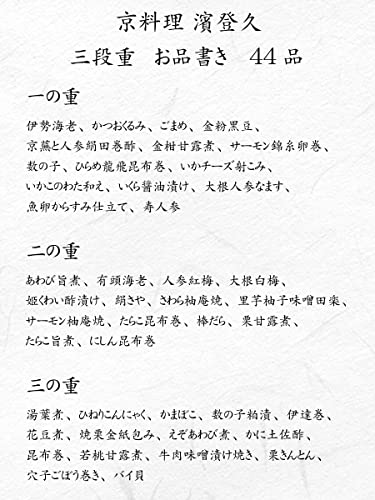 京料理 濱登久
三段重 お品書き 44品
一の重
伊勢海老、かつおくるみ、ごまめ、金粉黒豆、
京蕪と人参絹田巻酢、金柑甘露煮、サーモン錦糸卵巻、
数の子、ひらめ龍飛昆布巻、いかチーズ射こみ、
いかこのわた和え、いくら醤油漬け、大根人参なます、
魚卵からすみ仕立て、寿人参
二の重
あわび旨煮、有頭海老、人参紅梅、大根白梅、
姫くわい酢漬け、絹さや、さわら柚庵焼、里芋柚子味噌田楽、
サーモン柚庵焼、たらこ昆布巻、棒だら、栗甘露煮、
たらこ旨煮、にしん昆布巻
三の重
湯葉煮、ひねりこんにゃく、かまぼこ、数の子粕漬、伊達巻、
花豆煮、焼栗金紙包み、えぞあわび煮、かに土佐酢、
昆布巻、若桃甘露煮、牛肉味噌漬け焼き、栗きんとん、
穴子ごぼう巻き、バイ貝